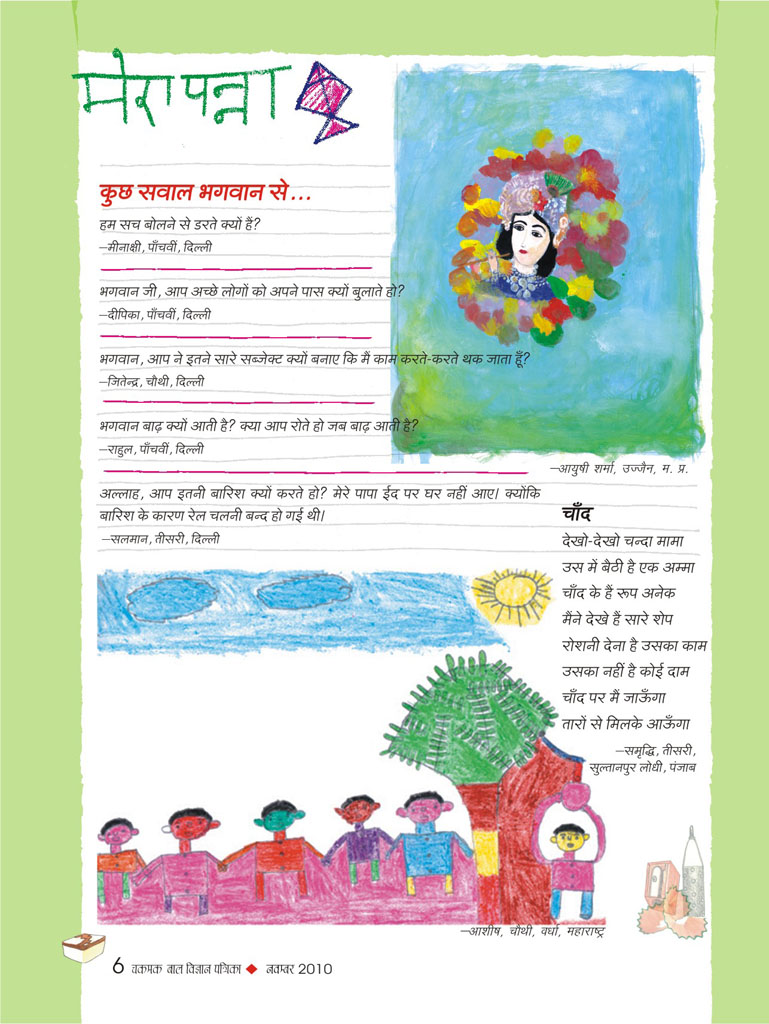 मेरा पन्ना
कुछ सवाल भगवान से...
हम सच बोलने से डरते क्यों हैं?
–मीनाक्षी, पाँचवीं, दिल्ली
भगवान जी, आप अच्छे लोगों को अपने पास क्यों बुलाते हो?
–दीपिका, पाँचवीं, दिल्ली
भगवान, आप ने इतने सारे सब्जेक्ट क्यों बनाए कि मैं काम करते-करते थक जाता हूँ?
–जितेन्द्र, चौथी, दिल्ली
भगवान बाढ़ क्यों आती है? क्या आप रोते हो जब बाढ़ आती है?
–राहुल, पाँचवीं, दिल्ली
अल्लाह, आप इतनी बारिश क्यों करते हो? मेरे पापा ईद पर घर नहीं आए। क्योंकि
बारिश के कारण रेल चलनी बन्द हो गई थी।
–सलमान, तीसरी, दिल्ली
–आयुषी शर्मा, उज्जैन, म. प्र.
चाँद
देखो-देखो चन्दा मामा
उस में बैठी है एक अम्मा
चाँद के हैं रूप अनेक
मैंने देखे हैं सारे शेप
रोशनी देना है उसका काम
उसका नहीं है कोई दाम
चाँद पर मैं जाऊँगा
तारों से मिलके आऊँगा
–समृद्धि, तीसरी,
सुल्तानपुर लोधी, पंजाब
–आशीष, चौथी, वर्धा, महाराष्ट्र
6 चकमक बाल विज्ञान पत्रिका ◆ नवम्बर 2010